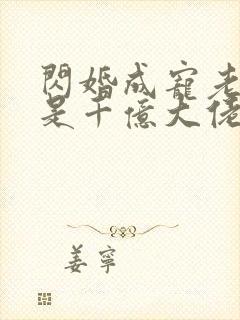 閃婚成寵老
是千億大佬
姜寧